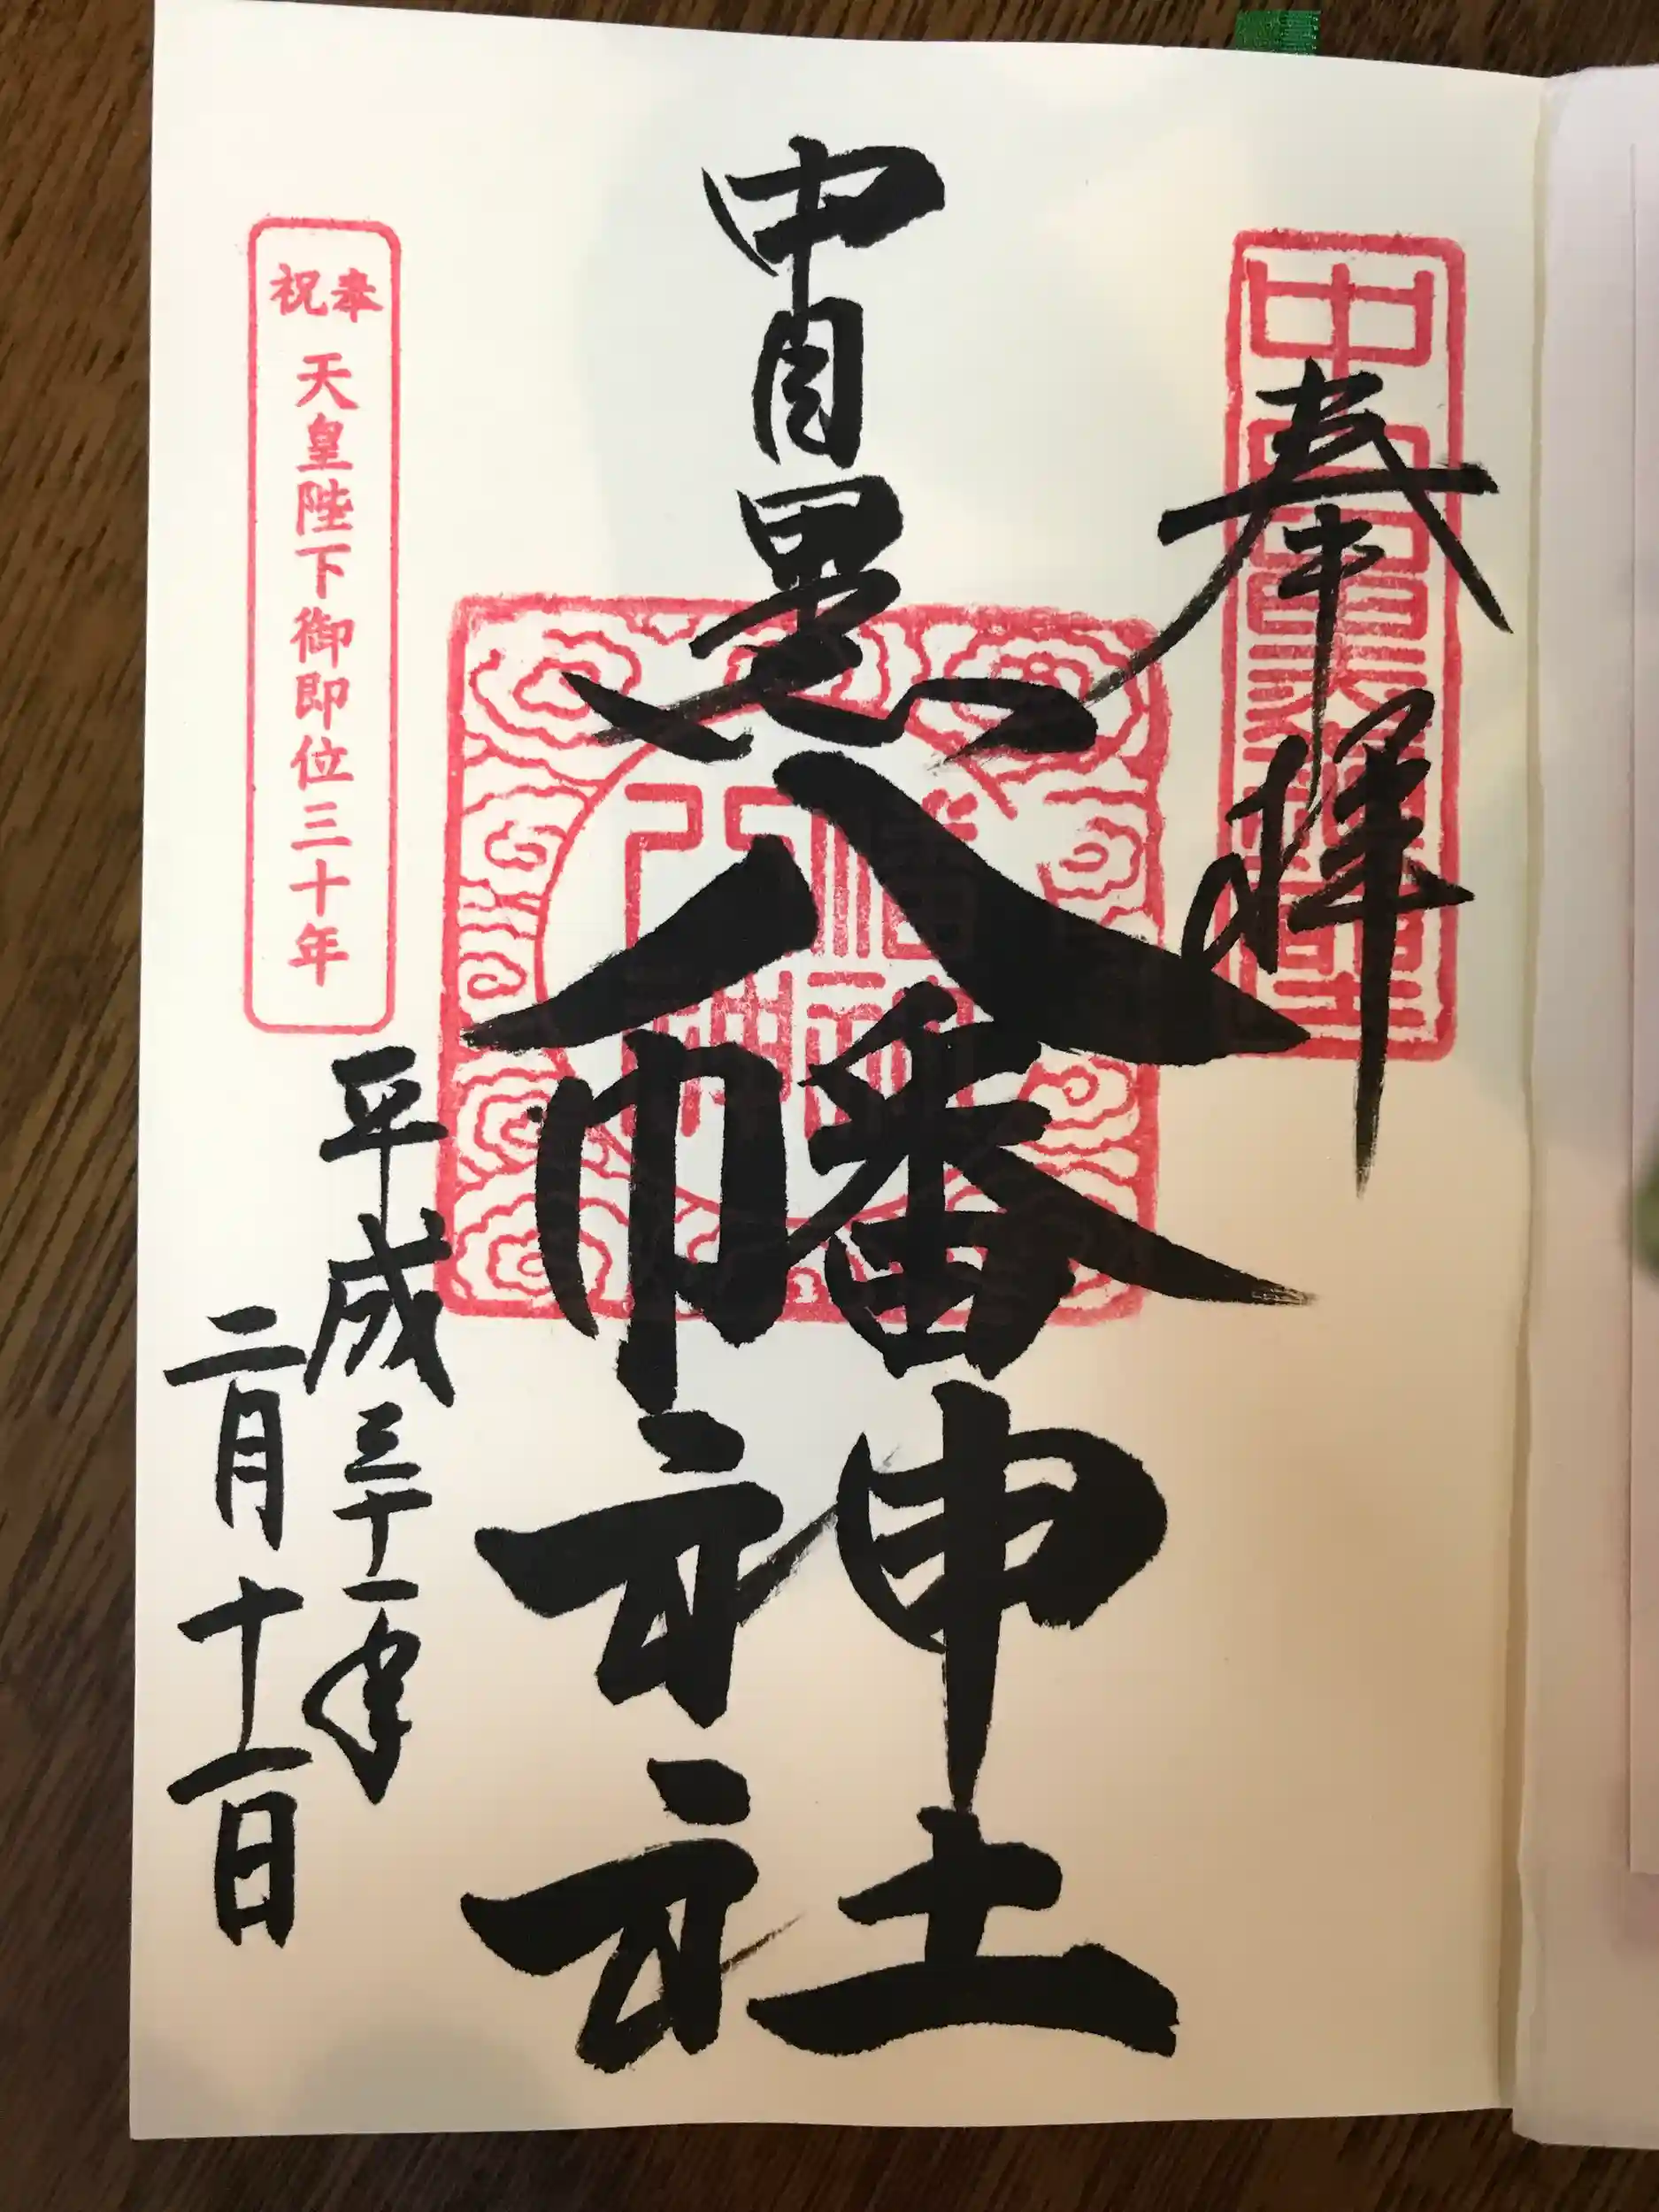 奉拝
中目黒
八幡神社
平成三十一年
二月十一日
奉祝
天皇陛下御即位三十年